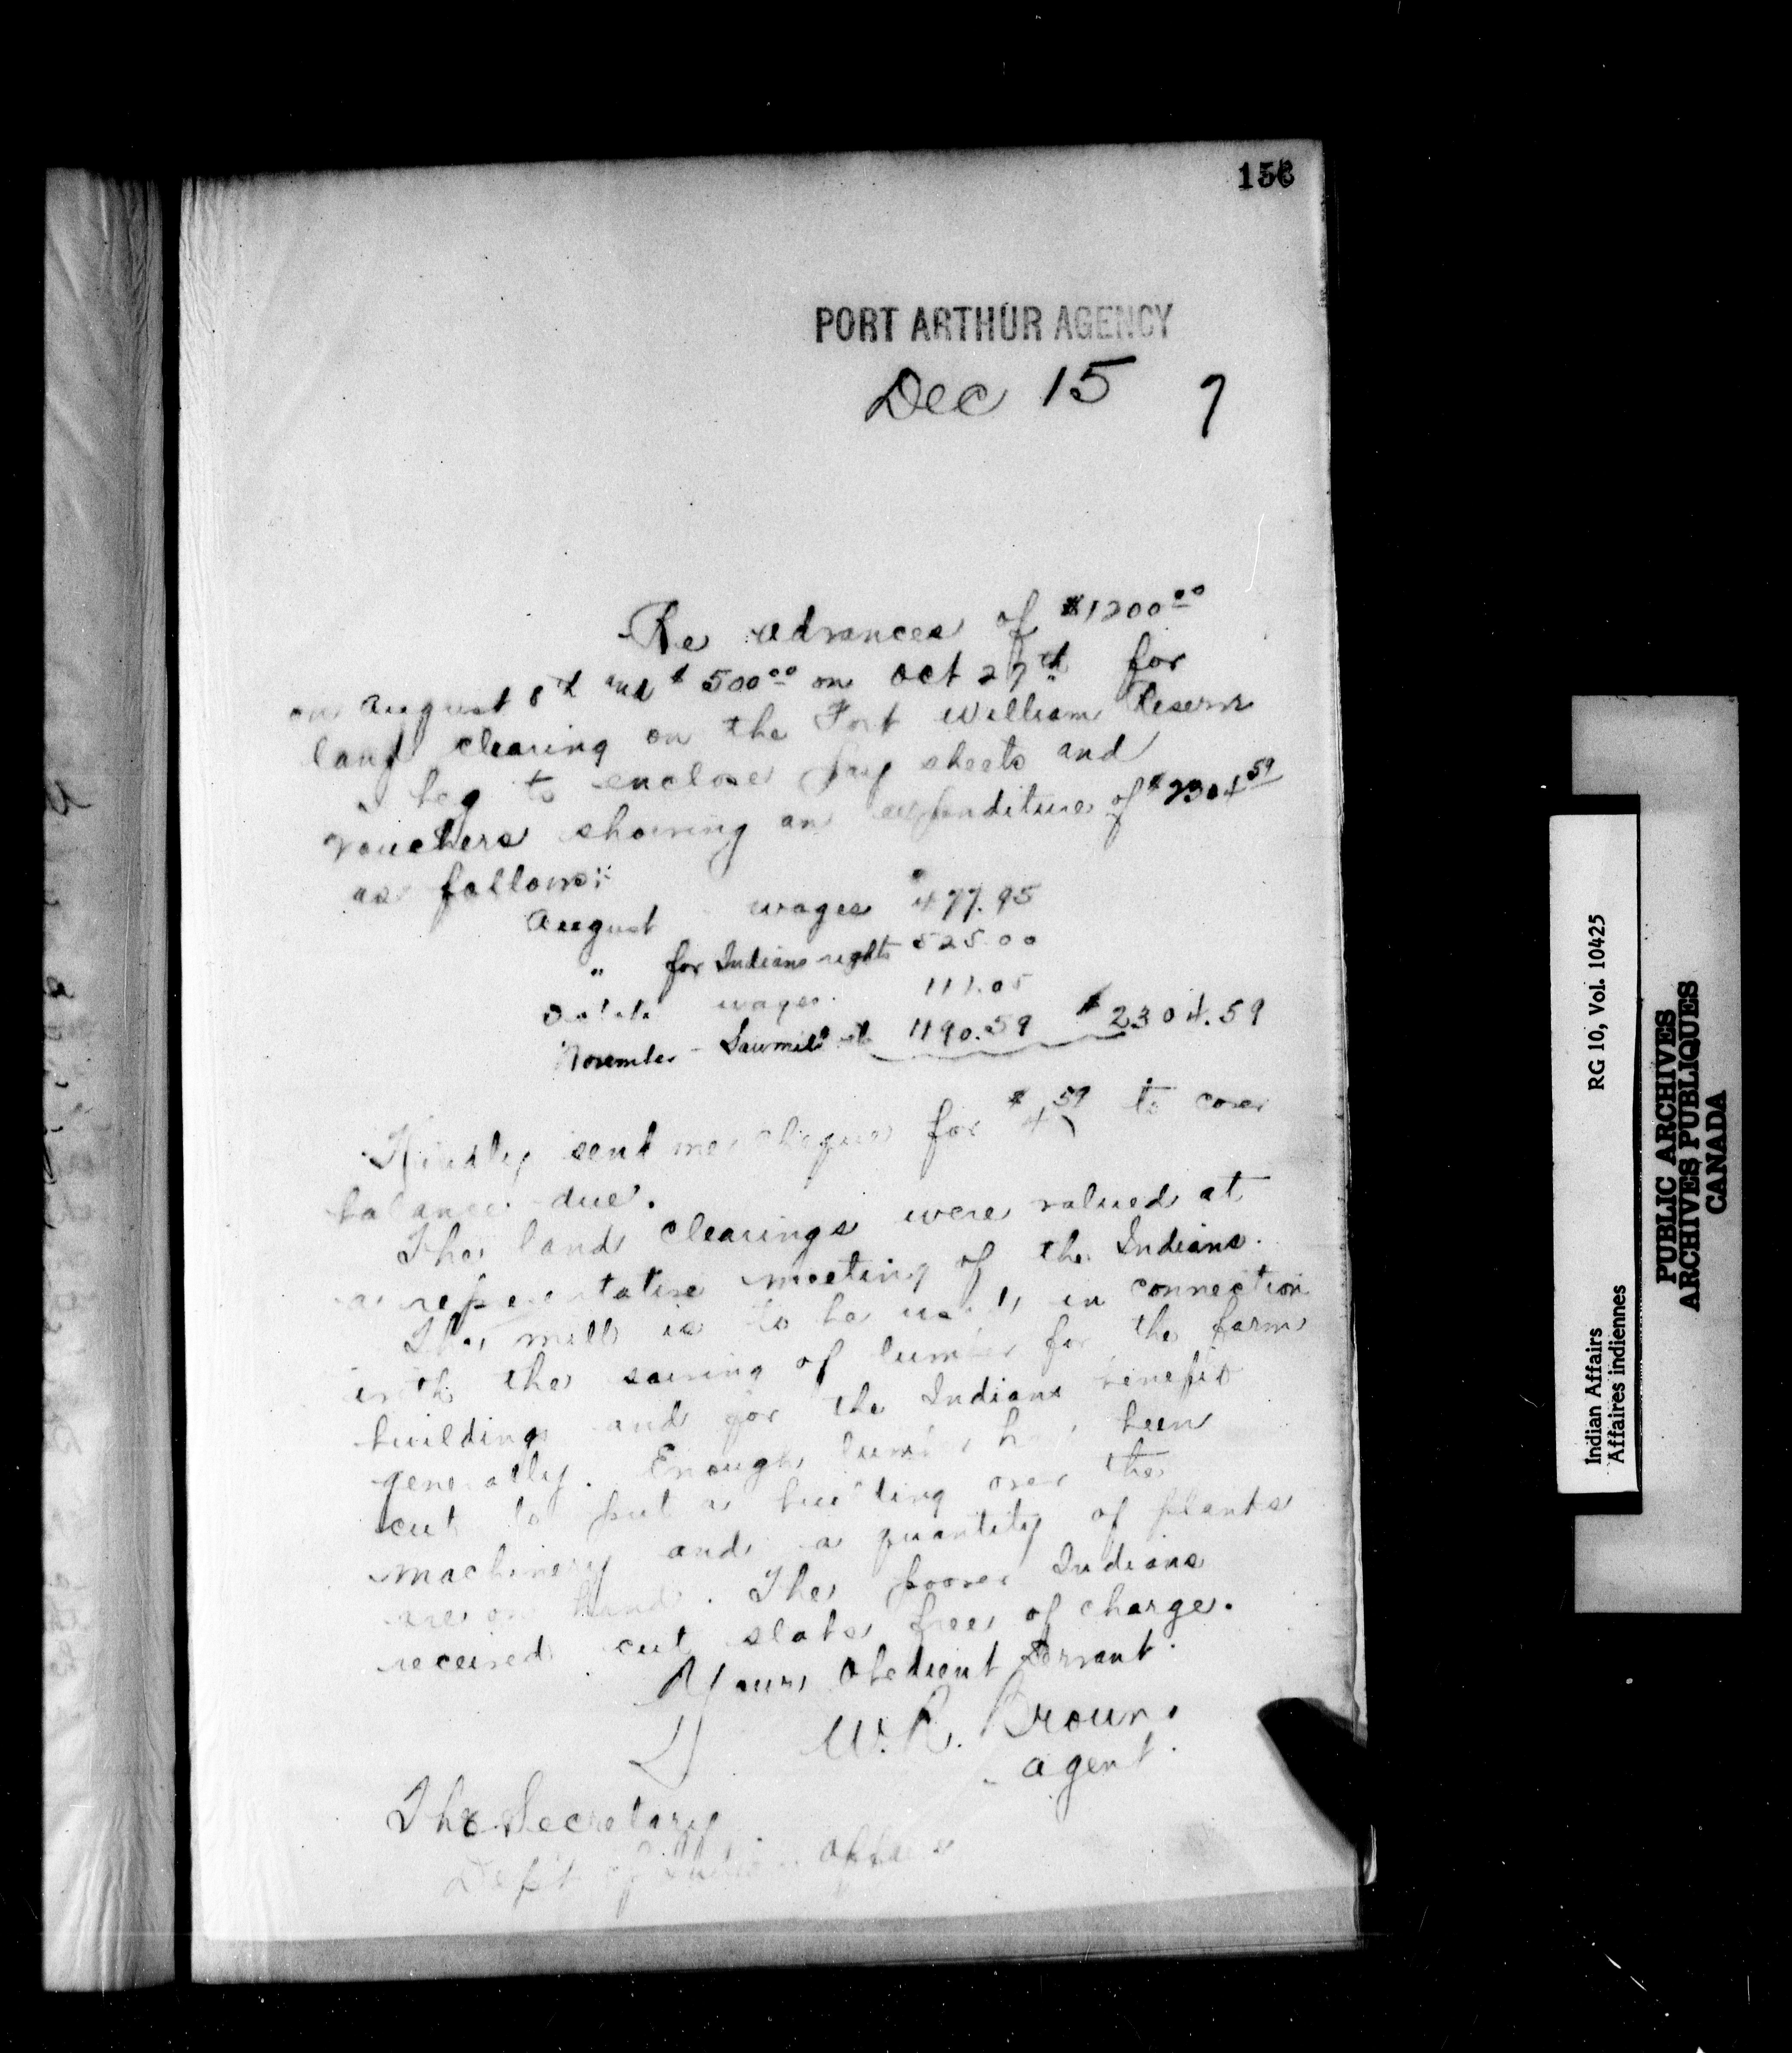 156
PORT ARTHUR AGENCY
Dec 15 7
Re advances of $1200.00
on August 8th and $500.00 on Oct 27th for
land clearing on the Fort William Reserve
I beg to enclose pay sheets and
vouchers showing an expenditure of $2304.59
as follows:
August wages $477.95
" for Indians rights 525.00
October wages 111.05
November - Sawmill 1190.59 $2304.59
Kindly send me cheque for $4.59 to cover
balance due.
The land clearings were valued at
a representative meeting of the Indians.
The mill is to be used in connection
with the sawing of lumber for the farm
buildings and for the Indians benefit
generally. Enough lumber has been
cut to put a building over the
machinery and a quantity of planks
are on hand. The poorer Indians
received cut slabs free of charge.
Your Obedient Servant
W. R. Brown
agent
The Secretary
Dept of Indian Affairs
Indian Affairs RG 10, Vol. 10425
Affaires indiennes
PUBLIC ARCHIVES
ARCHIVES PUBLIQUES
CANADA